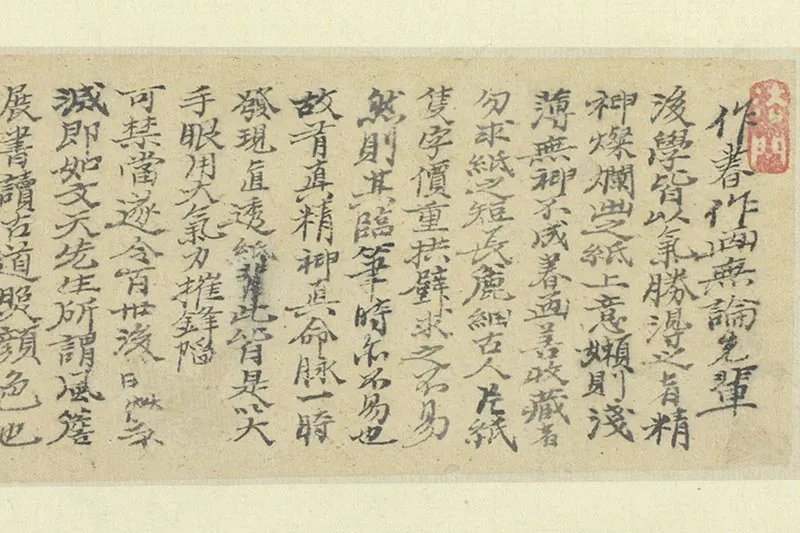 作書作画無論先輩
後學皆以氣勝得之者精
神燦爛出之紙上意嬾則淺
薄無神不成書画善收藏者
勿求紙之短長麤細古人片紙
隻字價重拱璧求之不易
然則其臨筆時亦不易也
故有真精神真命脉一時
發現直透紙背此皆是以大
手眼用大氣力摧鋒陷
可禁當遂令百世後
滅即如文天先生所謂風簷
展書讀古道照顏色也